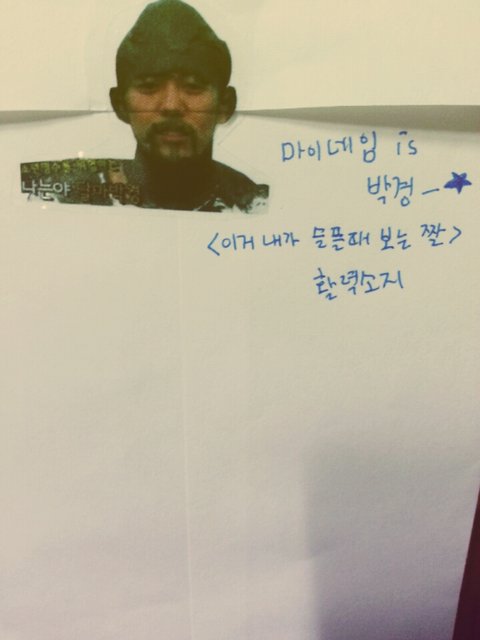 낮눈야
마이네임 is
박경 ―★
<이거 내가 슬플때 보는 짤>
활력소지